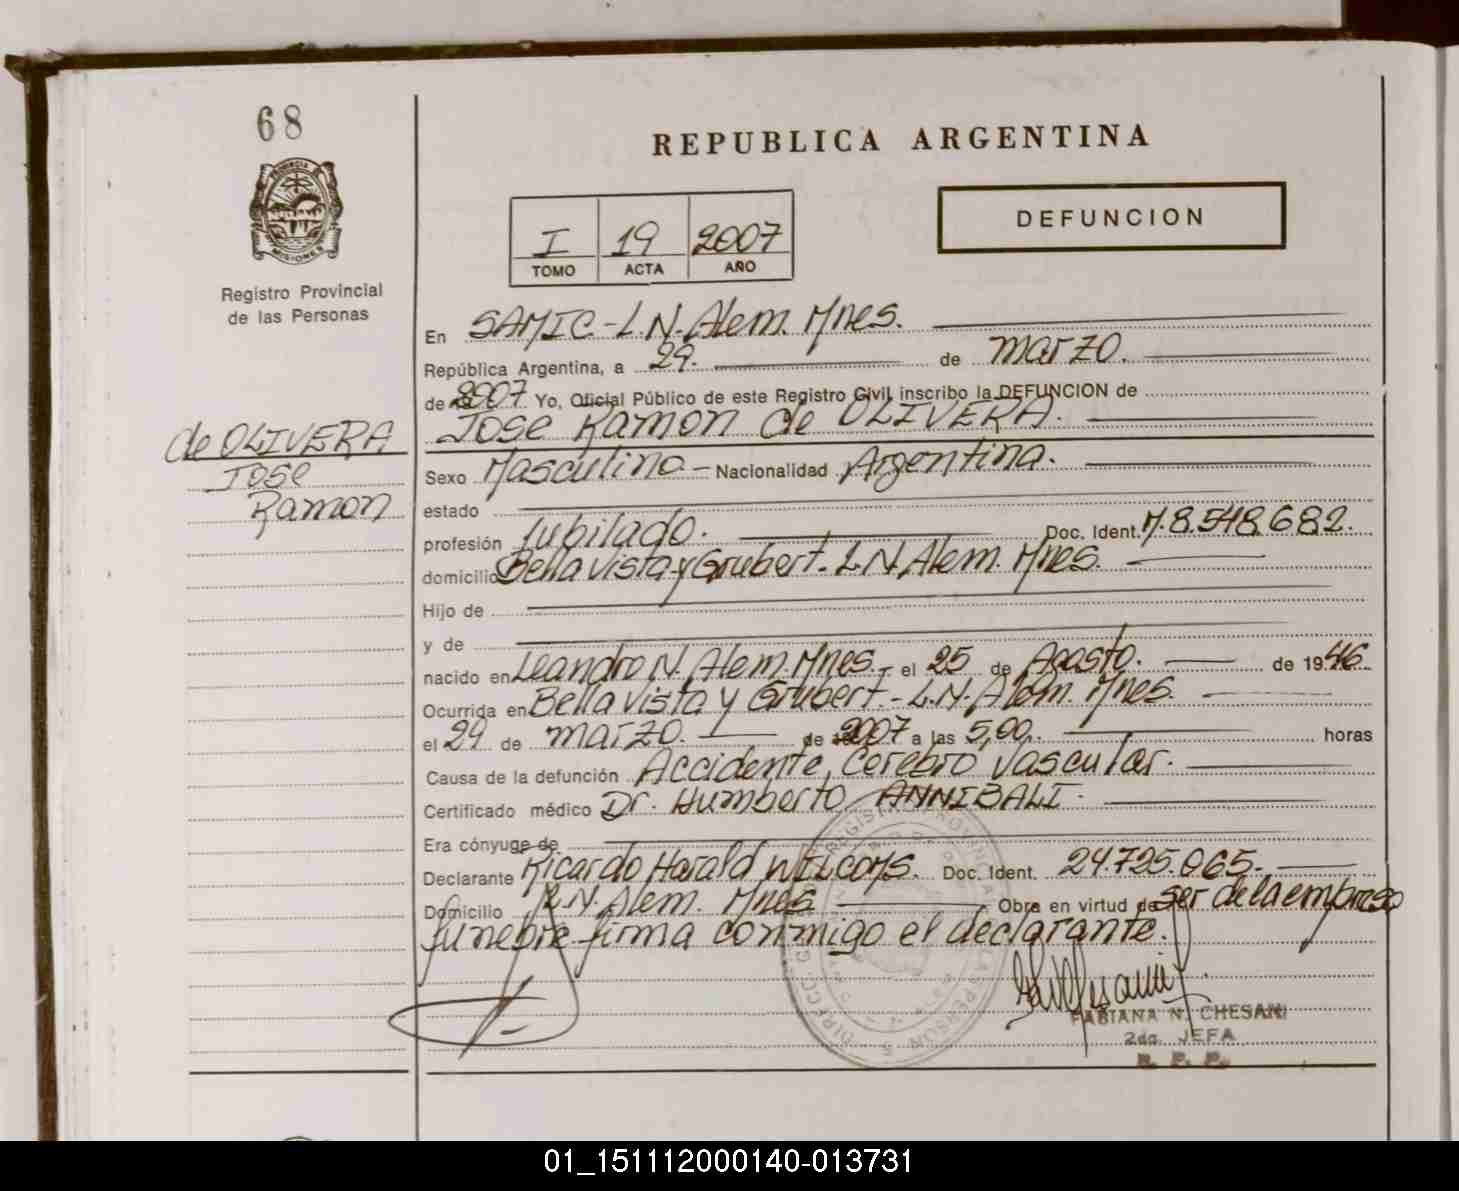 68
PROVINCIA DE
MISIONES
Registro Provincial
de las Personas
de OLIVERA
Jose
Ramon
REPUBLICA ARGENTINA
I 19 2007
TOMO ACTA AÑO
DEFUNCION
En SAMIC - L.N. Alem. Mnes.
República Argentina, a 29. de marzo.
de 2007 Yo, Oficial Público de este Registro Civil inscribo la DEFUNCION de
Jose Ramon de OLIVERA.
Sexo Masculino - Nacionalidad Argentina.
estado
profesión Jubilado. Doc. Ident. M.8.548.682.
domicilio Bella vista y Grubert. L.N. Alem. Mnes.
Hijo de
y de
nacido en Leandro N. Alem. Mnes. - el 25 de Agosto. de 1946.
Ocurrida en Bella vista y Grubert. - L.N. Alem. Mnes.
el 29 de marzo. de 2007 a las 5,00. horas
Causa de la defunción Accidente Cerebro Vascular.
Certificado médico Dr. Humberto ANNIBALI.
Era cónyuge de
Declarante Ricardo Harald Doc. Ident. 24.725.065.
Domicilio L.N. Alem. Mnes Obra en virtud de ser de la empresa
funebre firma conmigo el declarante.
FABIANA N. CHESANI
2da. JEFA
R. P. P.
01_151112000140-013731